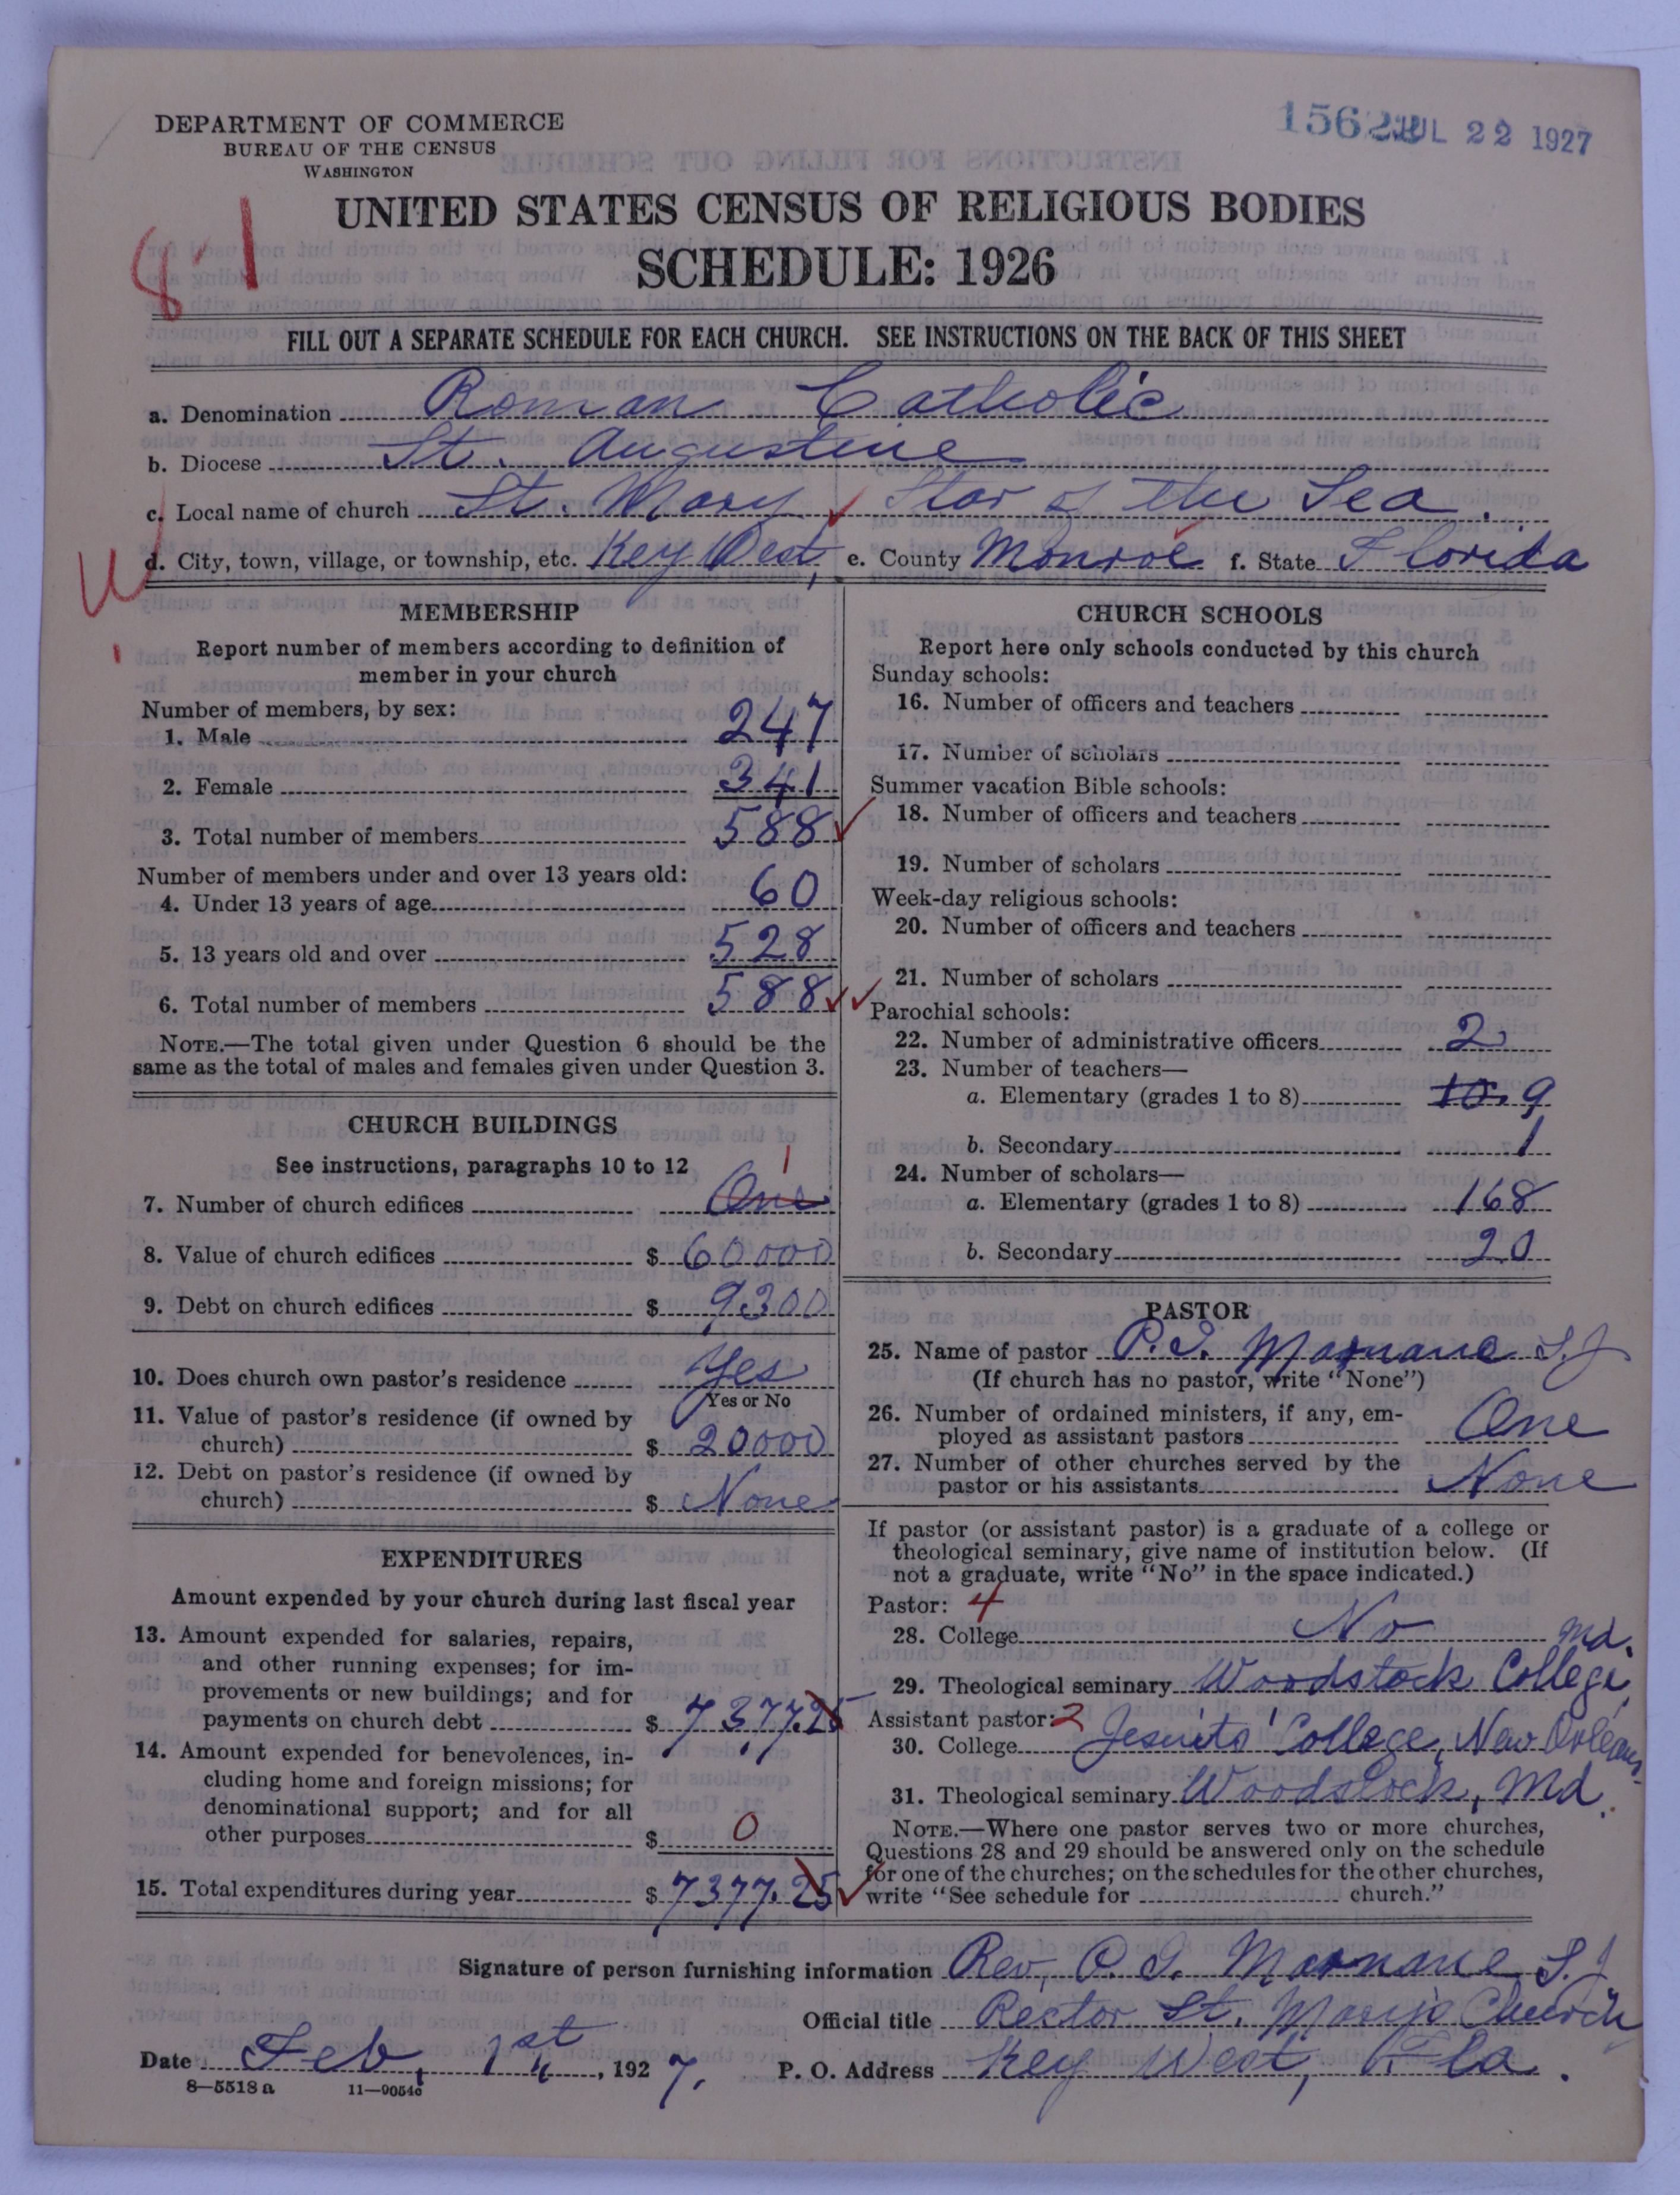 DEPARTMENT OF COMMERCE
BUREAU OF THE CENSUS
WASHINGTON
JUL 22 1927
UNITED STATES CENSUS OF RELIGIOUS BODIES
SCHEDULE: 1926
81
FILL OUT A SEPARATE SCHEDULE FOR EACH CHURCH. SEE INSTRUCTIONS ON THE BACK OF THIS SHEET
a. Denomination Roman Catholic
b. Diocese St. Augustine
c. Local name of church St. Mary Star of the Sea.
d. City, town, village, or township, etc. Key West, e. County Monroe f. State Florida
MEMBERSHIP
Report number of members according to definition of
member in your church
Number of members, by sex:
1. Male 247
2. Female 341
3. Total number of members 588
Number of members under and over 13 years old:
4. Under 13 years of age 60
5. 13 years old and over 528
6. Total number of members 588
NOTE.—The total given under Question 6 should be the
same as the total of males and females given under Question 3.
CHURCH BUILDINGS
See instructions, paragraphs 10 to 12
1
7. Number of church edifices One
8. Value of church edifices $ 60000
9. Debt on church edifices $ 9300
10. Does church own pastor's residence Yes
Yes or No
11. Value of pastor's residence (if owned by
church) $ 20000
12. Debt on pastor's residence (if owned by
church) $ None
EXPENDITURES
Amount expended by your church during last fiscal year
13. Amount expended for salaries, repairs,
and other running expenses; for im-
provements or new buildings; and for
payments on church debt $ 7377.25
14. Amount expended for benevolences, in-
cluding home and foreign missions; for
denominational support; and for all
other purposes $ 0
15. Total expenditures during year $ 7377.25
CHURCH SCHOOLS
Report here only schools conducted by this church
Sunday schools:
16. Number of officers and teachers
17. Number of scholars
Summer vacation Bible schools:
18. Number of officers and teachers
19. Number of scholars
Week-day religious schools:
20. Number of officers and teachers
21. Number of scholars
Parochial schools:
22. Number of administrative officers 2
23. Number of teachers—
a. Elementary (grades 1 to 8) 10. 9
b. Secondary 1
24. Number of scholars—
a. Elementary (grades 1 to 8) 168
b. Secondary 20
PASTOR
25. Name of pastor P.J. Marnane S.J
(If church has no pastor, write "None")
26. Number of ordained ministers, if any, em-
ployed as assistant pastors One
27. Number of other churches served by the
pastor or his assistants None
If pastor (or assistant pastor) is a graduate of a college or
theological seminary, give name of institution below. (If
not a graduate, write "No" in the space indicated.)
Pastor: 4
28. College No
29. Theological seminary Woodstock College, Md.
Assistant pastor: 2
30. College Jesuits' College, New Orleans.
31. Theological seminary Woodstock, Md.
NOTE.—Where one pastor serves two or more churches,
Questions 28 and 29 should be answered only on the schedule
for one of the churches; on the schedules for the other churches,
write "See schedule for church."
Signature of person furnishing information Rev. P. J. Marnane S.J
Official title Rector St. Mary's Church
Date Feb. 1st, 1927. P. O. Address Key West, Fla.
8—5518 a 11—9054c